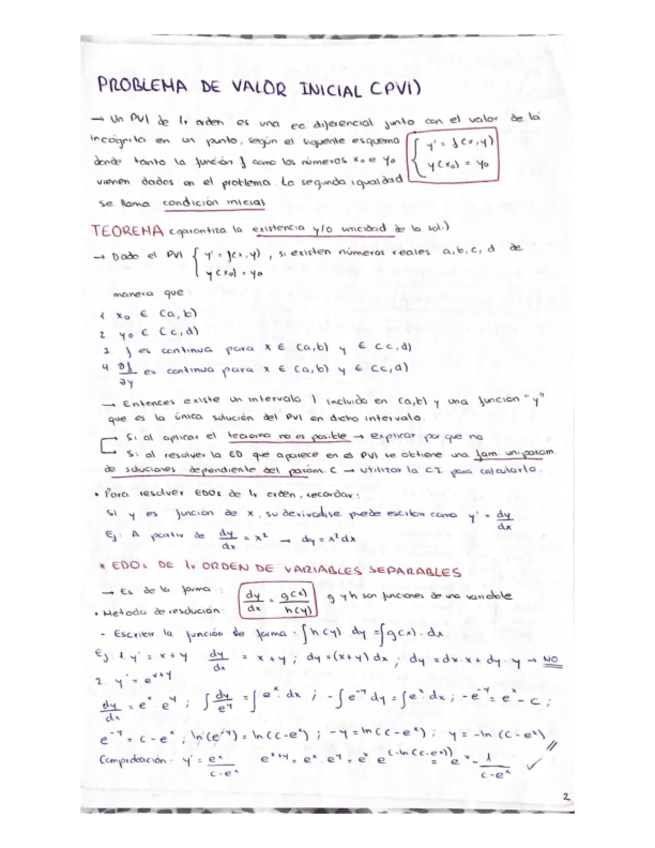 PROBLEMA DE VALOR INICIAL (PVI)
→ Un PVI de 1r orden es una ec diferencial junto con el valor de la
incógnita en un punto, según el siguiente esquema { y' = f(x,y)
donde tanto la función f como los números x₀ e y₀ y(x₀) = y₀
vienen dados en el problema. La segunda igualdad
se llama condición inicial
TEOREMA (garantiza la existencia y/o unicidad de la sol.)
→ Dado el PVI { y' = f(x,y) , si existen números reales a, b, c, d de
y(x₀) = y₀
manera que:
1. x₀ ∈ (a, b)
2. y₀ ∈ (c, d)
3. f es continua para x ∈ (a,b) y ∈ (c,d)
4. ∂f/∂y es continua para x ∈ (a,b) y ∈ (c,d)
→ Entonces existe un intervalo I incluido en (a,b) y una función "y"
que es la única solución del PVI en dicho intervalo.
→ Si al aplicar el teorema no es posible → explicar por que no
→ Si al resolver la ED que aparece en el PVI se obtiene una fam. uniparam.
de soluciones dependiente del parám. C → utilizar la CI para calcularlo.
• Para resolver EDOs de 1r orden, recordar:
Si y es función de x, su derivada se puede escribir como y' = dy/dx
Ej: A partir de dy/dx = x² → dy = x² dx
* EDOs DE 1r ORDEN DE VARIABLES SEPARABLES
→ Es de la forma: dy/dx = g(x)/h(y) g y h son funciones de una variable
• Metodo de resolución:
- Escribir la función de forma: ∫h(y) dy = ∫g(x) · dx
Ej: 1. y' = x + y dy/dx = x + y ; dy = (x+y) dx ; dy = dx · x + dy · y → NO
2. y' = e^(x+y)
dy/dx = e^x · e^y ; ∫dy/e^y = ∫e^x · dx ; -∫e^(-y) dy = ∫e^x dx ; -e^(-y) = e^x - C ;
e^(-y) = C - e^x ; ln(e^(-y)) = ln(C-e^x) ; -y = ln(C-e^x) ; y = -ln(C-e^x)
Comprobación: y' = e^x/(C-e^x) e^(x+y) = e^x · e^y = e^x · e^(-ln(C-e^x)) = e^x · 1/(C-e^x) ✓
2